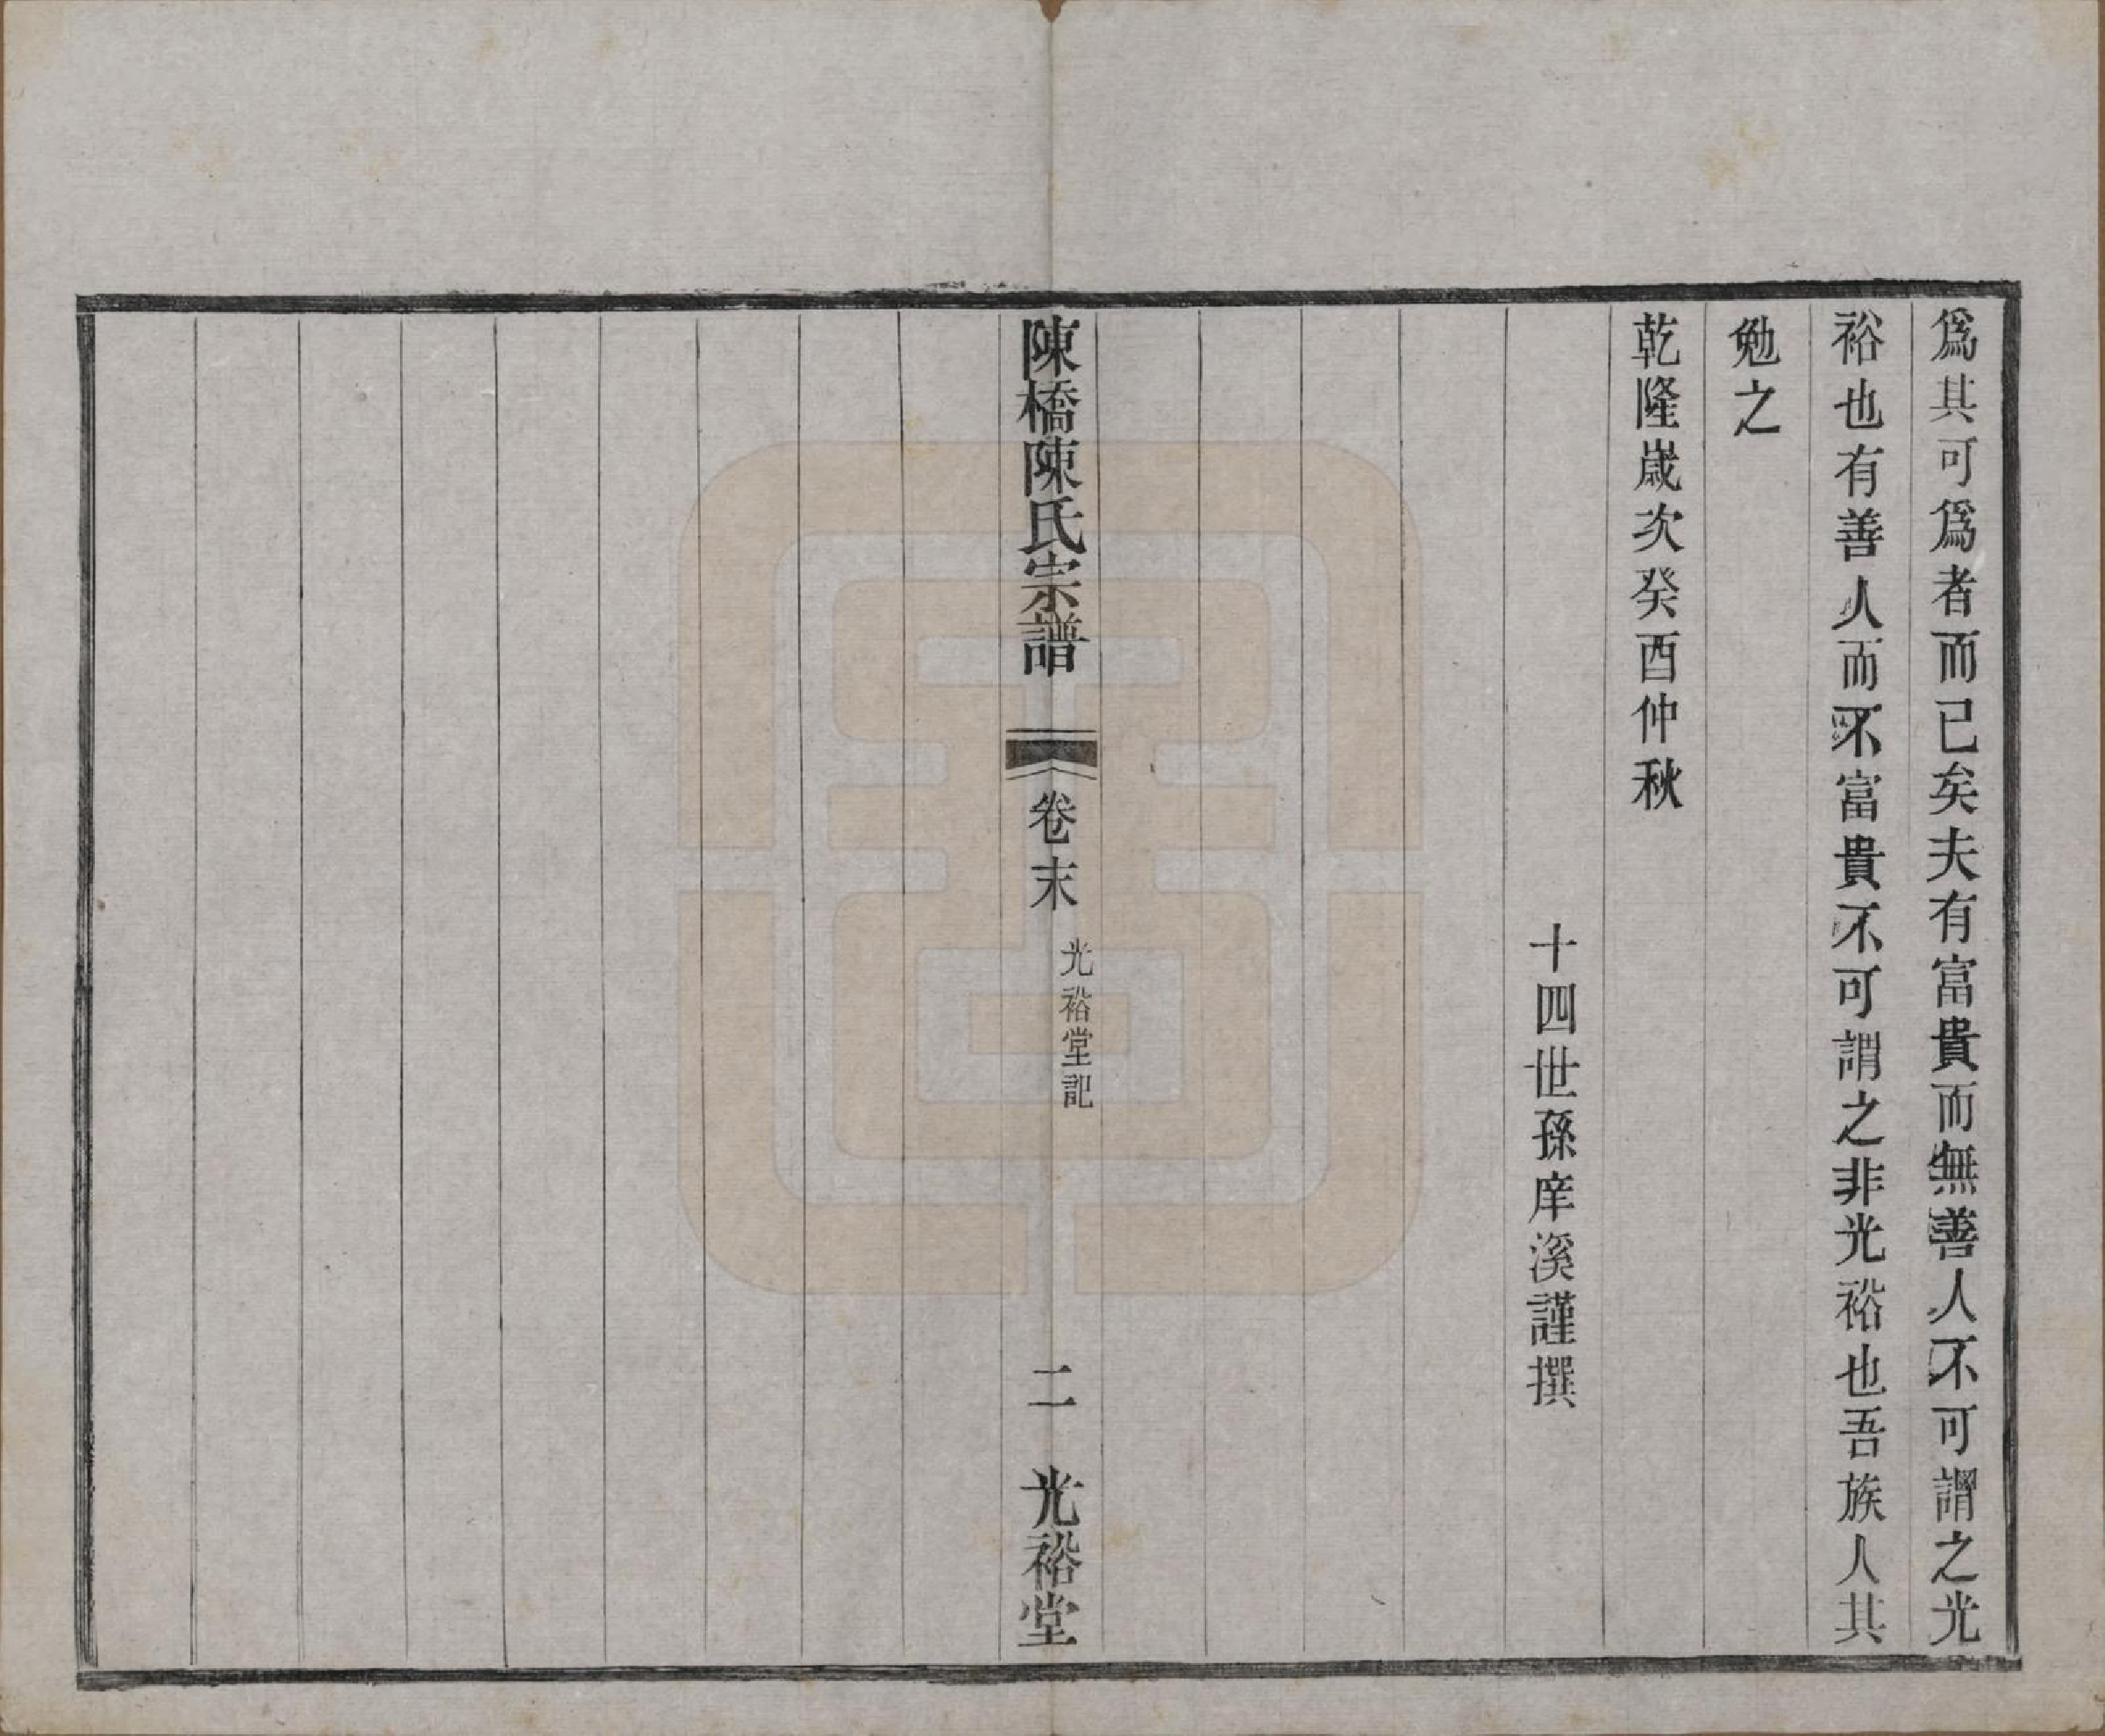 爲其可爲者而已矣夫有富貴而無善人不可謂之光
裕也有善人而不富貴不可謂之非光裕也吾族人其
勉之
乾隆歲次癸酉仲秋
十四世孫庠溪謹撰
陳橋陳氏宗譜 卷末 光裕堂記 二 光裕堂